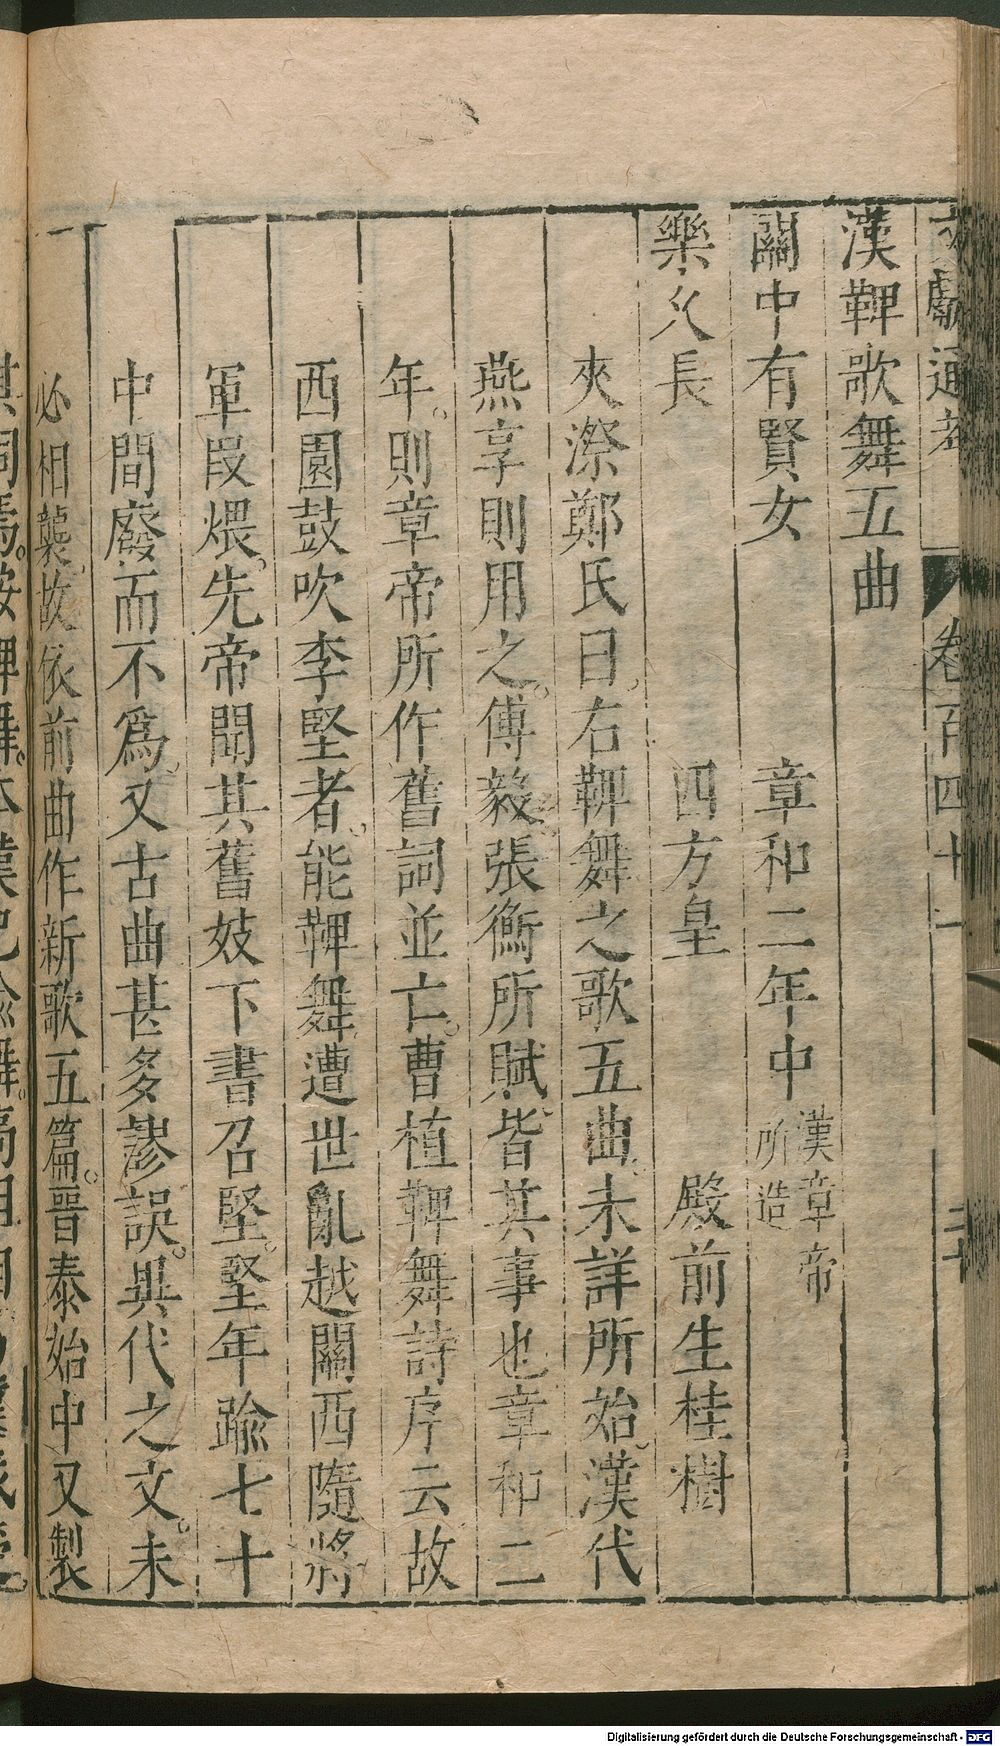 文獻通考 卷百四十一 二十
漢鞞歌舞五曲
關中有賢女 章和二年中 漢章帝所造
樂久長 四方皇 殿前生桂樹
夾漈鄭氏曰右鞞舞之歌五曲未詳所始漢代
燕享則用之傅毅張衡所賦皆其事也章和二
年則章帝所作舊詞並亡曹植鞞舞詩序云故
西園鼓吹李堅者能鞞舞遭世亂越關西隨將
軍段煨先帝聞其舊妓下書召堅堅年踰七十
中間廢而不爲又古曲甚多謬誤異代之文未
必相襲故依前曲作新歌五篇晉泰始中又製
其詞焉按鞞舞本漢巴渝舞高祖自
Digitalisierung gefördert durch die Deutsche Forschungsgemeinschaft - DFG